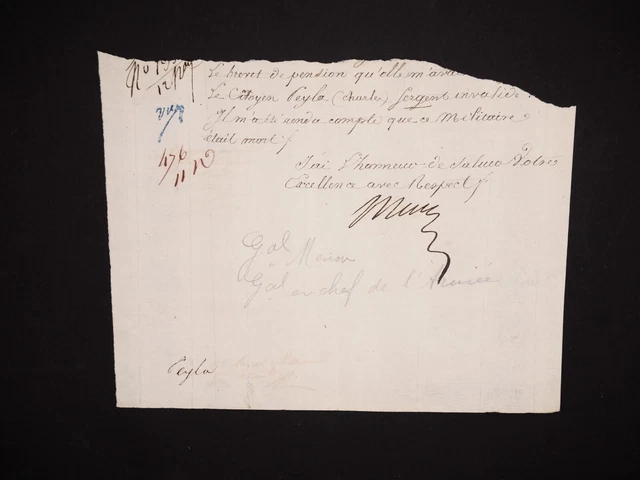 Le brevet de pension qu'elle m'ava
Le Citoyen Peyla (charles) Sergent invalide.
Il m'a été rendu compte que ce Militaire
était mort
J'ai l'honneur de saluer Votre
Excellence avec Respect
Menou
Gal Menou
Gal en chef de l'Armée
Peyla
176
11 12